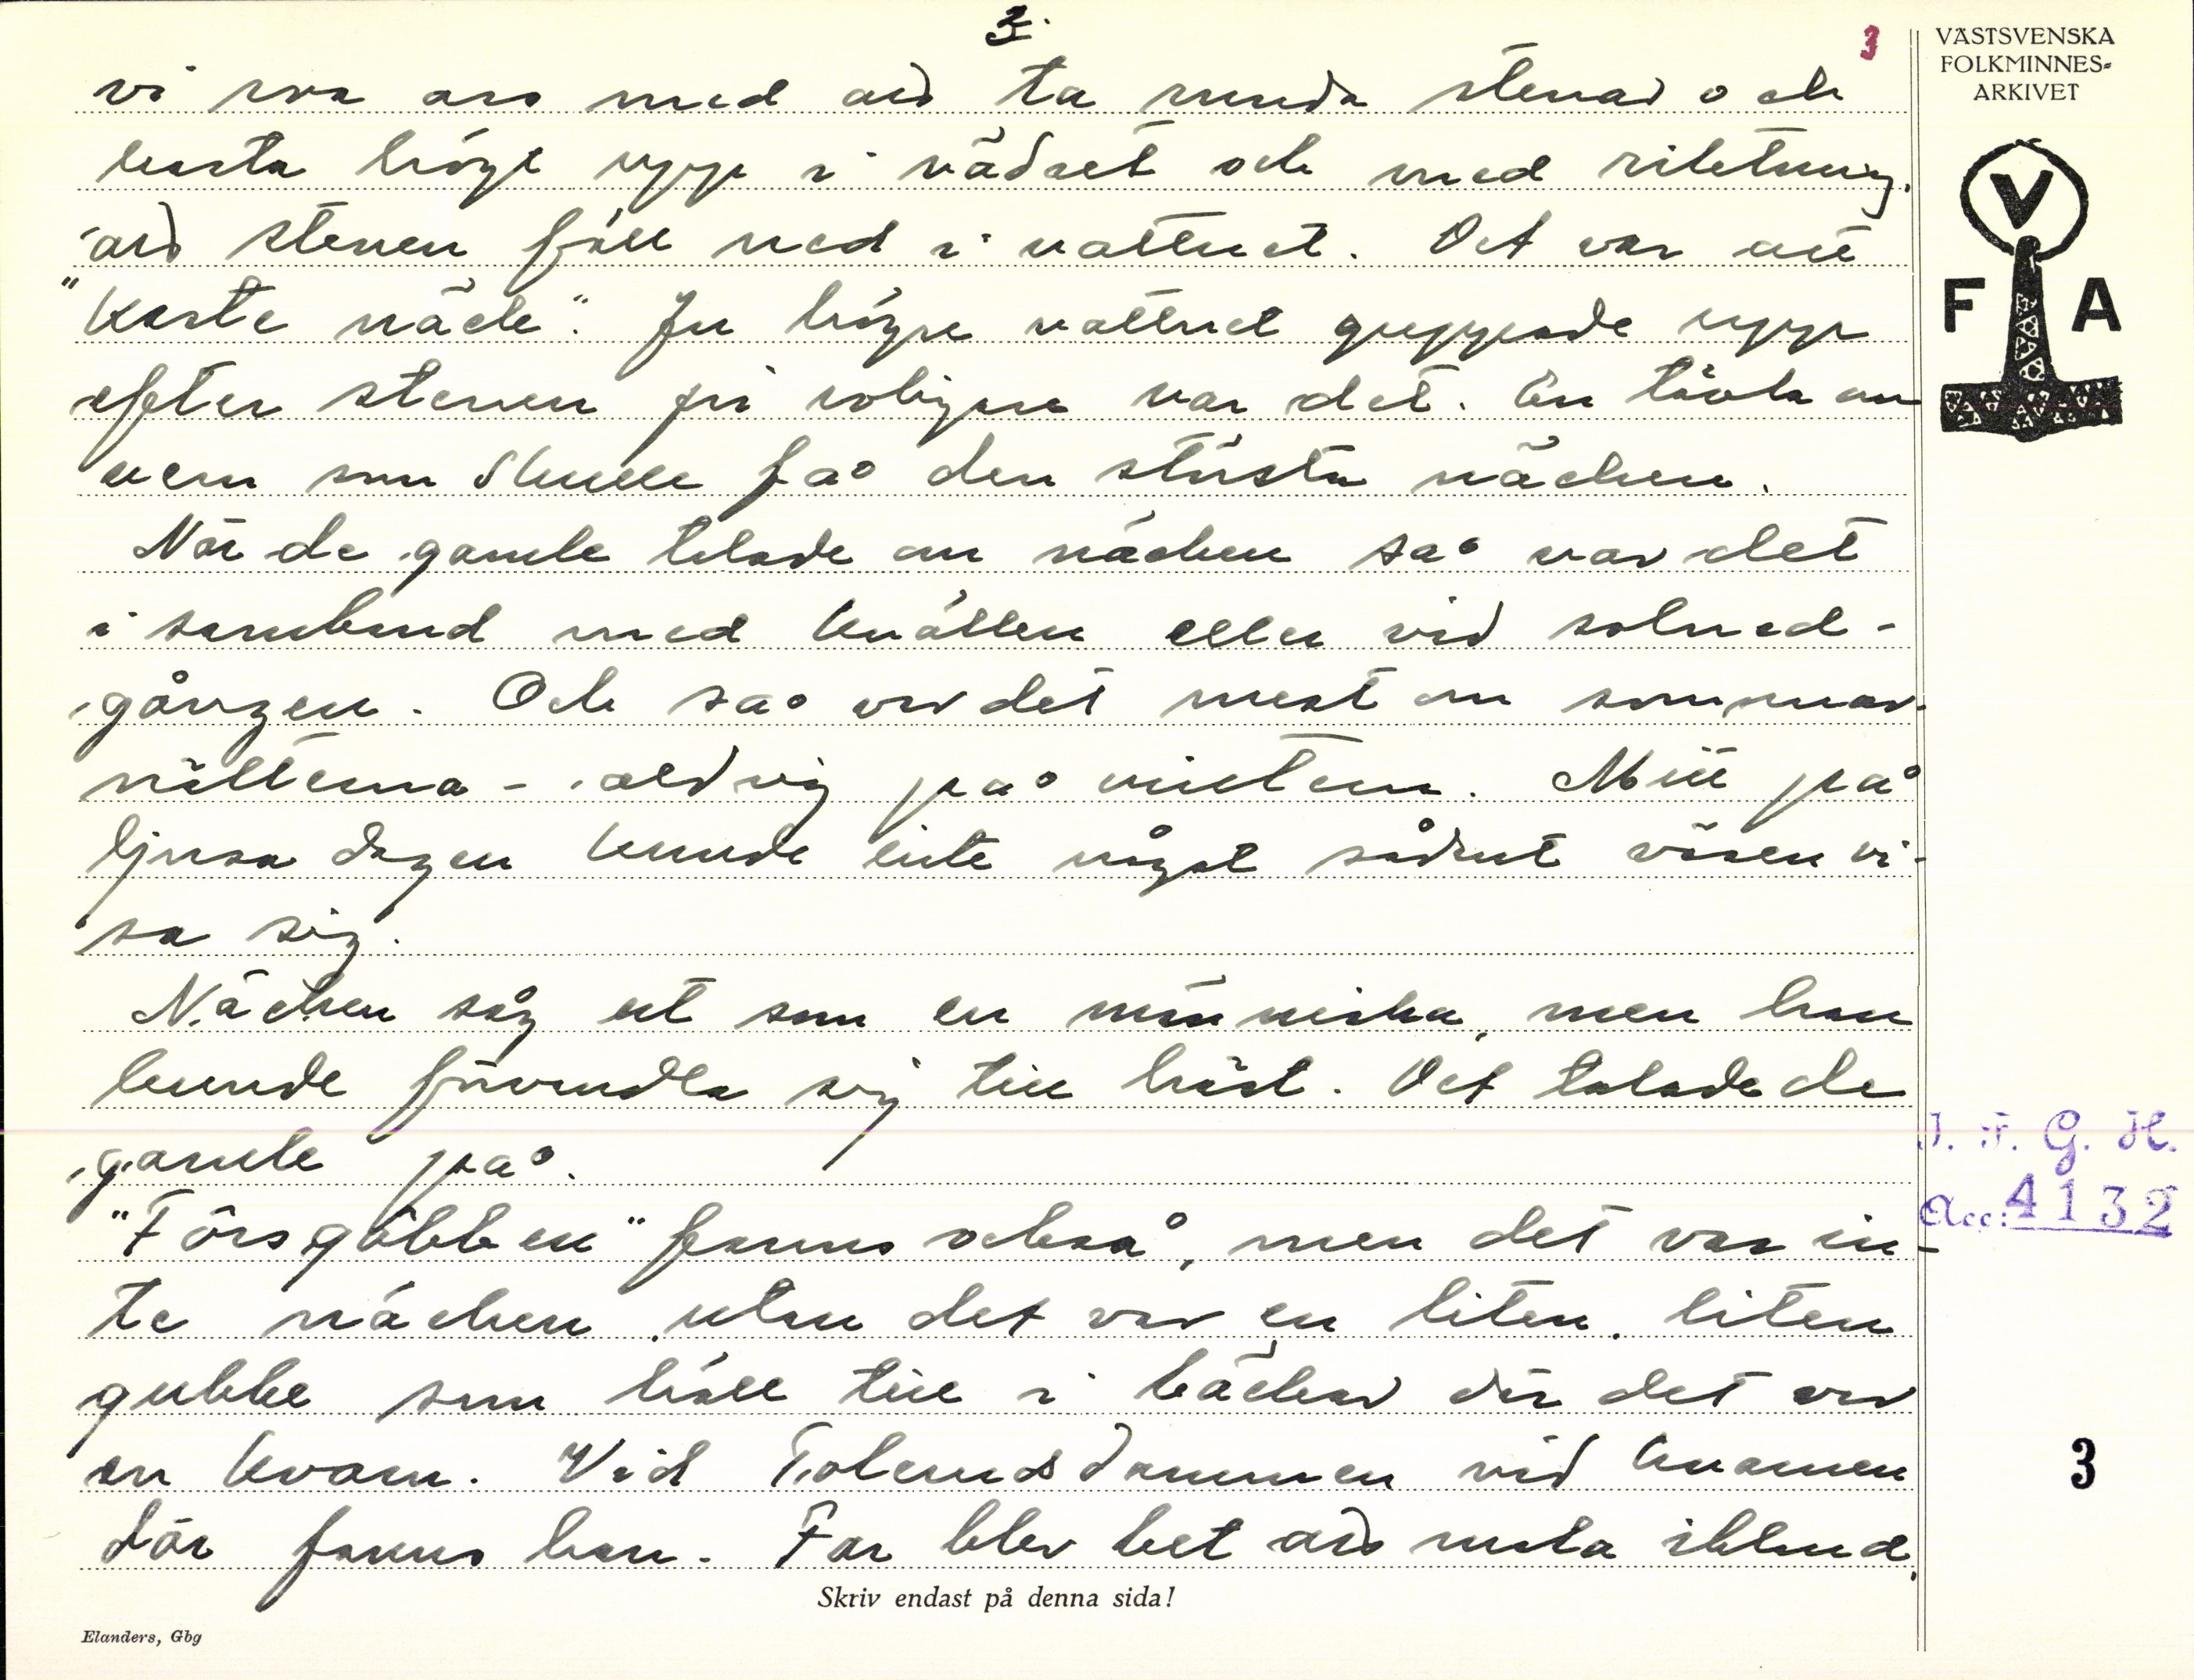 3.
3
VÄSTSVENSKA
FOLKMINNES-
ARKIVET
vi roa oss med att ta runda stenar och
kasta högt upp i vädret och med riktning
att stenen föll ned i vattnet. Det var att
"kaste näck". Ju högre vattnet guppade upp
efter stenen ju roligare var det. En tävlan
vem som skulle få den största näcken.
När de gamle talade om näcken så var det
i samband med kvällen eller vid solned-
gången. Och så var det mest om sommar-
nätterna - aldrig på vintern. Mitt på
ljusa dagen kunde inte något sådant väsen vi-
sa sig.
Näcken såg ut som en människa, men han
kunde förvandla sig till häst. Det talade de
gamle på.
"Forsgubben" fanns också, men det var in-
te näcken utan det var en liten, liten
gubbe som höll till i bäckar där det var
en kvarn. Vid dammen vid kvarnen
där fanns han. Far blev bet att mala ibland,
V
F A
J. F. G. H.
Acc: 4132
3
Skriv endast på denna sida!
Elanders, Gbg